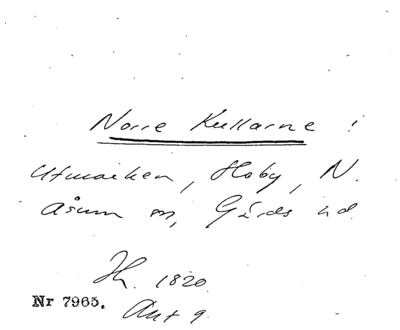 Norre Kullarne i
Utmarken, Hoby, N.
Åsum sn, Gärds hd.
H. 1820.
Nr 7965.
Akt 9